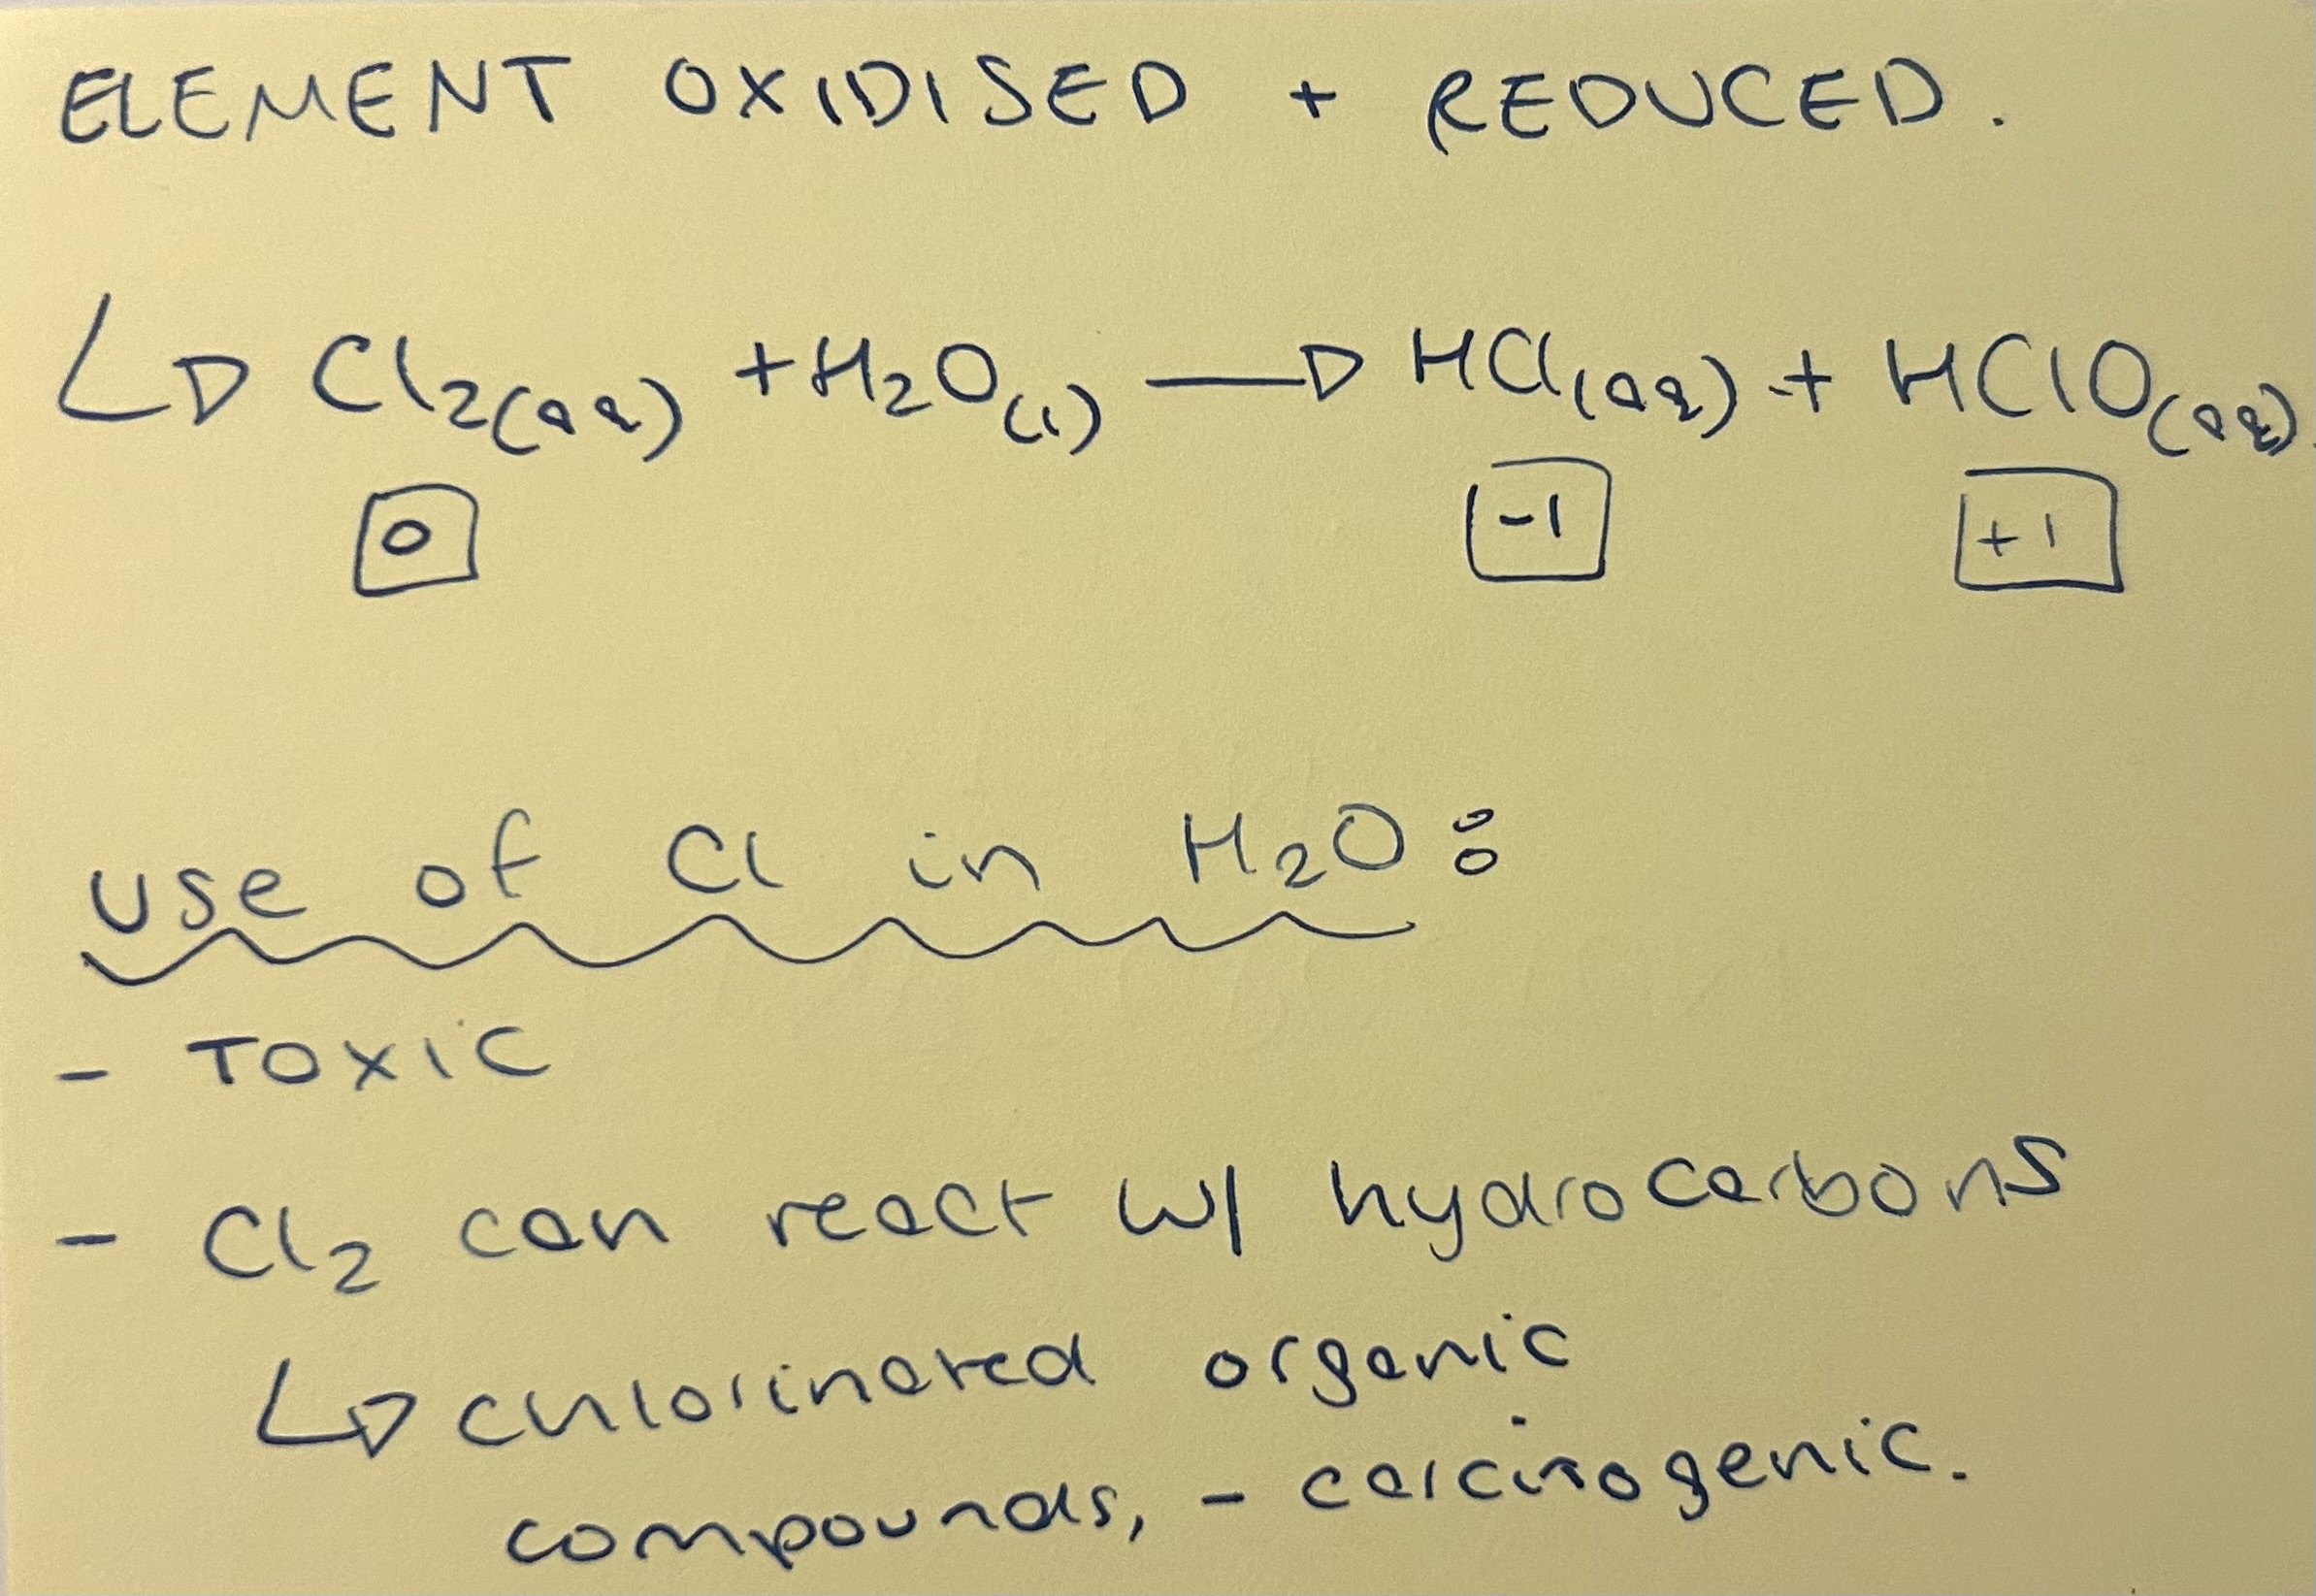 ELEMENT OXIDISED + REDUCED.
↳ Cl₂(aq) + H₂O(l) → HCl(aq) + HClO(aq).
0 -1 +1
use of Cl in H₂O:
- TOXIC
- Cl₂ can react w/ hydrocarbons
↳ chlorinated organic
compounds, - carcinogenic.